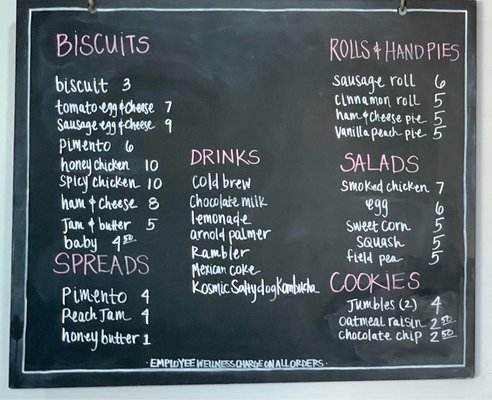 BISCUITS
biscuit 3
tomato egg & cheese 7
Sausage egg & cheese 9
Pimento 6
honey chicken 10
spicy chicken 10
ham & cheese 8
Jam & butter 5
baby 4.50
SPREADS
Pimento 4
Peach Jam 4
honey butter 1
DRINKS
cold brew
chocolate milk
lemonade
arnold palmer
Rambler
Mexican coke
Kosmic Salty dog Kombucha
ROLLS & HAND PIES
Sausage roll 6
Cinnamon roll 5
ham & cheese pie 5
Vanilla peach pie 5
SALADS
Smoked chicken 7
egg 6
Sweet corn 5
Squash 5
field pea 5
COOKIES
Jumbles (2) 4
Oatmeal raisin 2.50
chocolate chip 2.50
· EMPLOYEE WELLNESS CHARGE ON ALL ORDERS ·